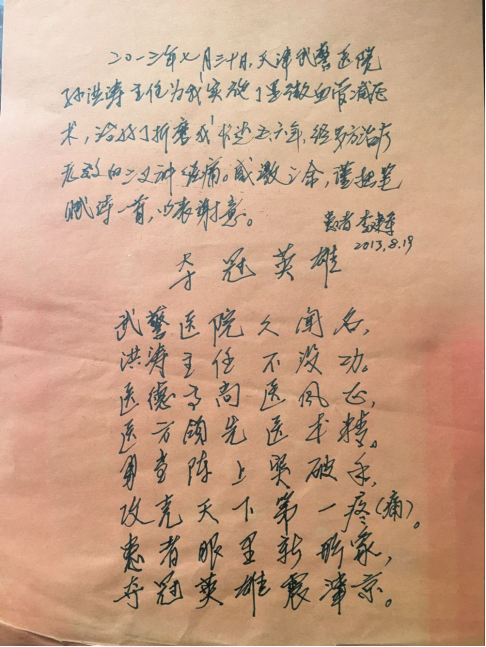 二〇一三年七月三十日,天津武警医院
孙洪涛主任为我实施了显微血管减压
术,治好了折磨我长达五、六年,经多方治疗
无效的三叉神经痛。感激之余,谨把笔
赋诗一首,以表谢意。
患者 李
2013.8.19
夺冠英雄
武警医院久闻名,
洪涛主任不没功。
医德高尚医风正,
医方领先医术精。
勇当阵上突破手,
攻克天下第一疼(痛)。
患者眼里新形象,
夺冠英雄震津京。